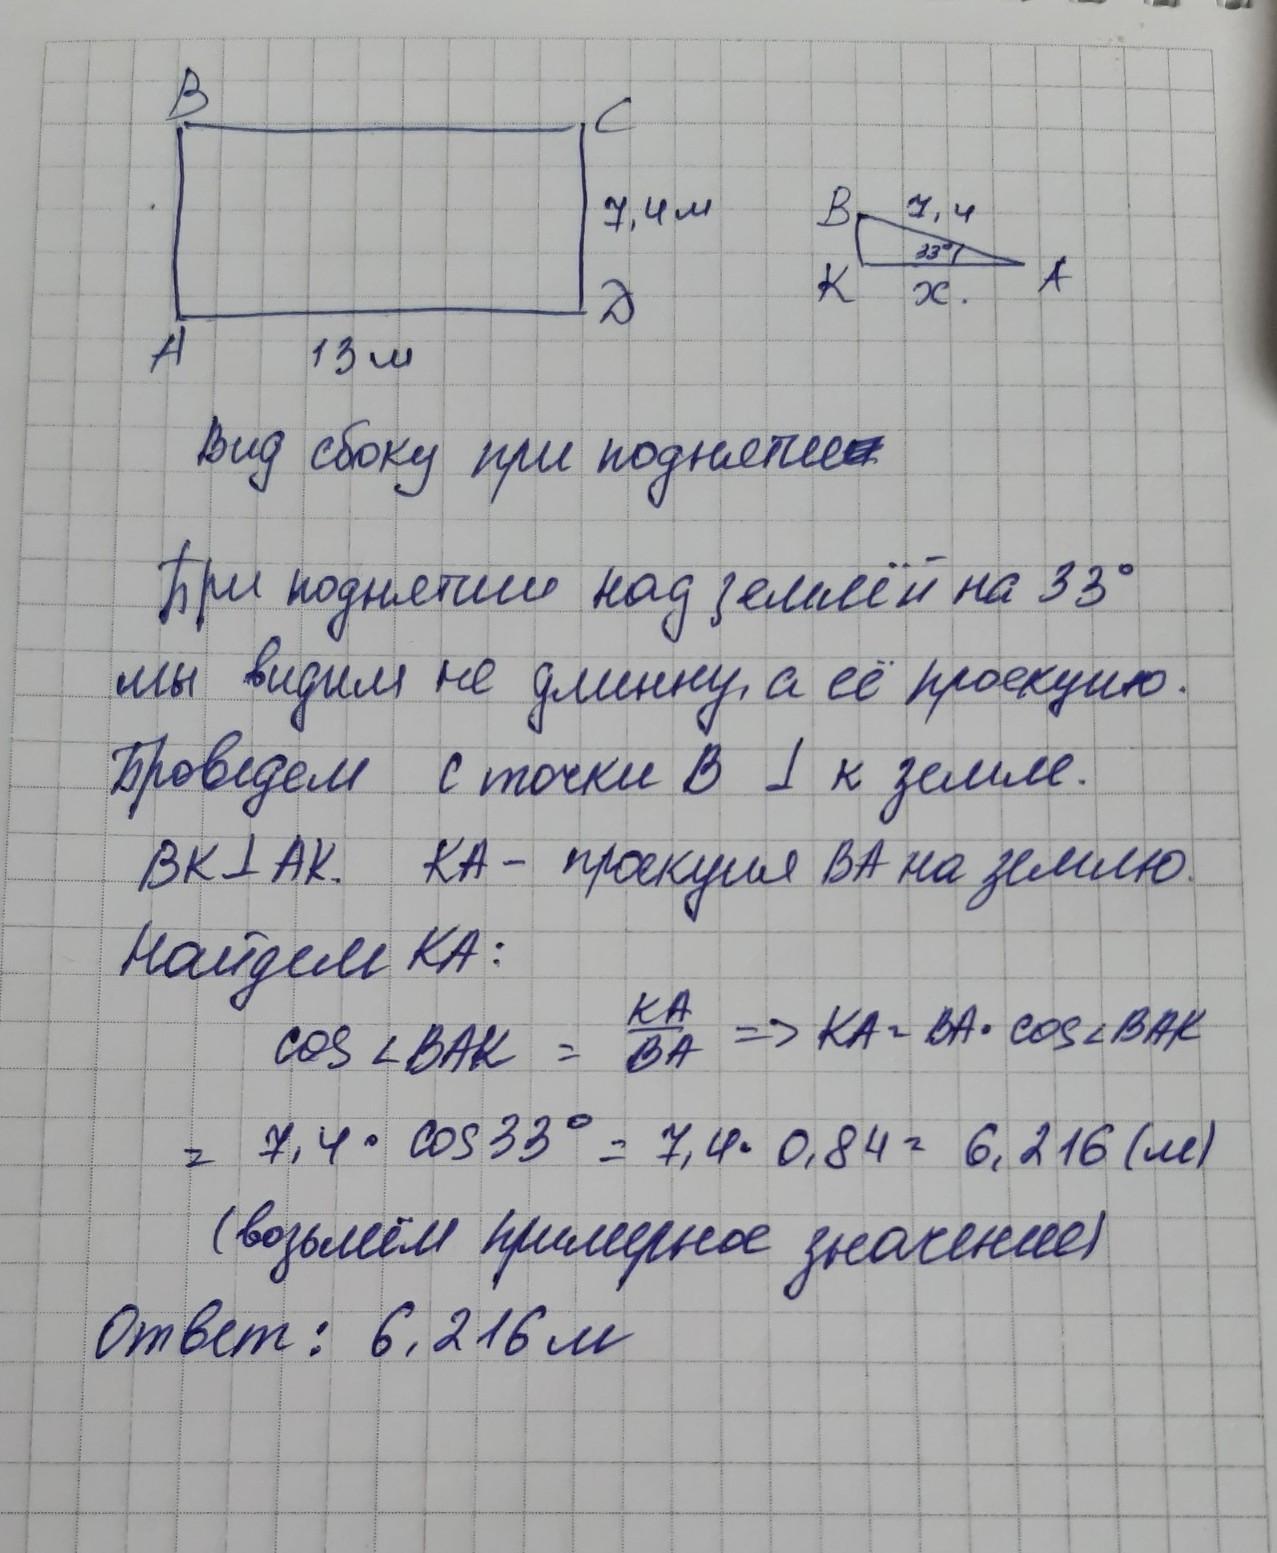 B
C
7,4м
A
D
13м
B 7,4
33°
K x. A
Вид сбоку при поднятии
При поднятии над землёй на 33°
мы видим не длинну, а её проекцию.
Проведем с точки B ⊥ к земле.
BK⊥AK. KA – проекция BA на землю.
Найдем KA:
cos∠BAK = KA/BA => KA = BA · cos∠BAK
= 7,4 · cos33° = 7,4 · 0,84 = 6,216 (м)
(возьмём примерное значение)
Ответ: 6,216 м